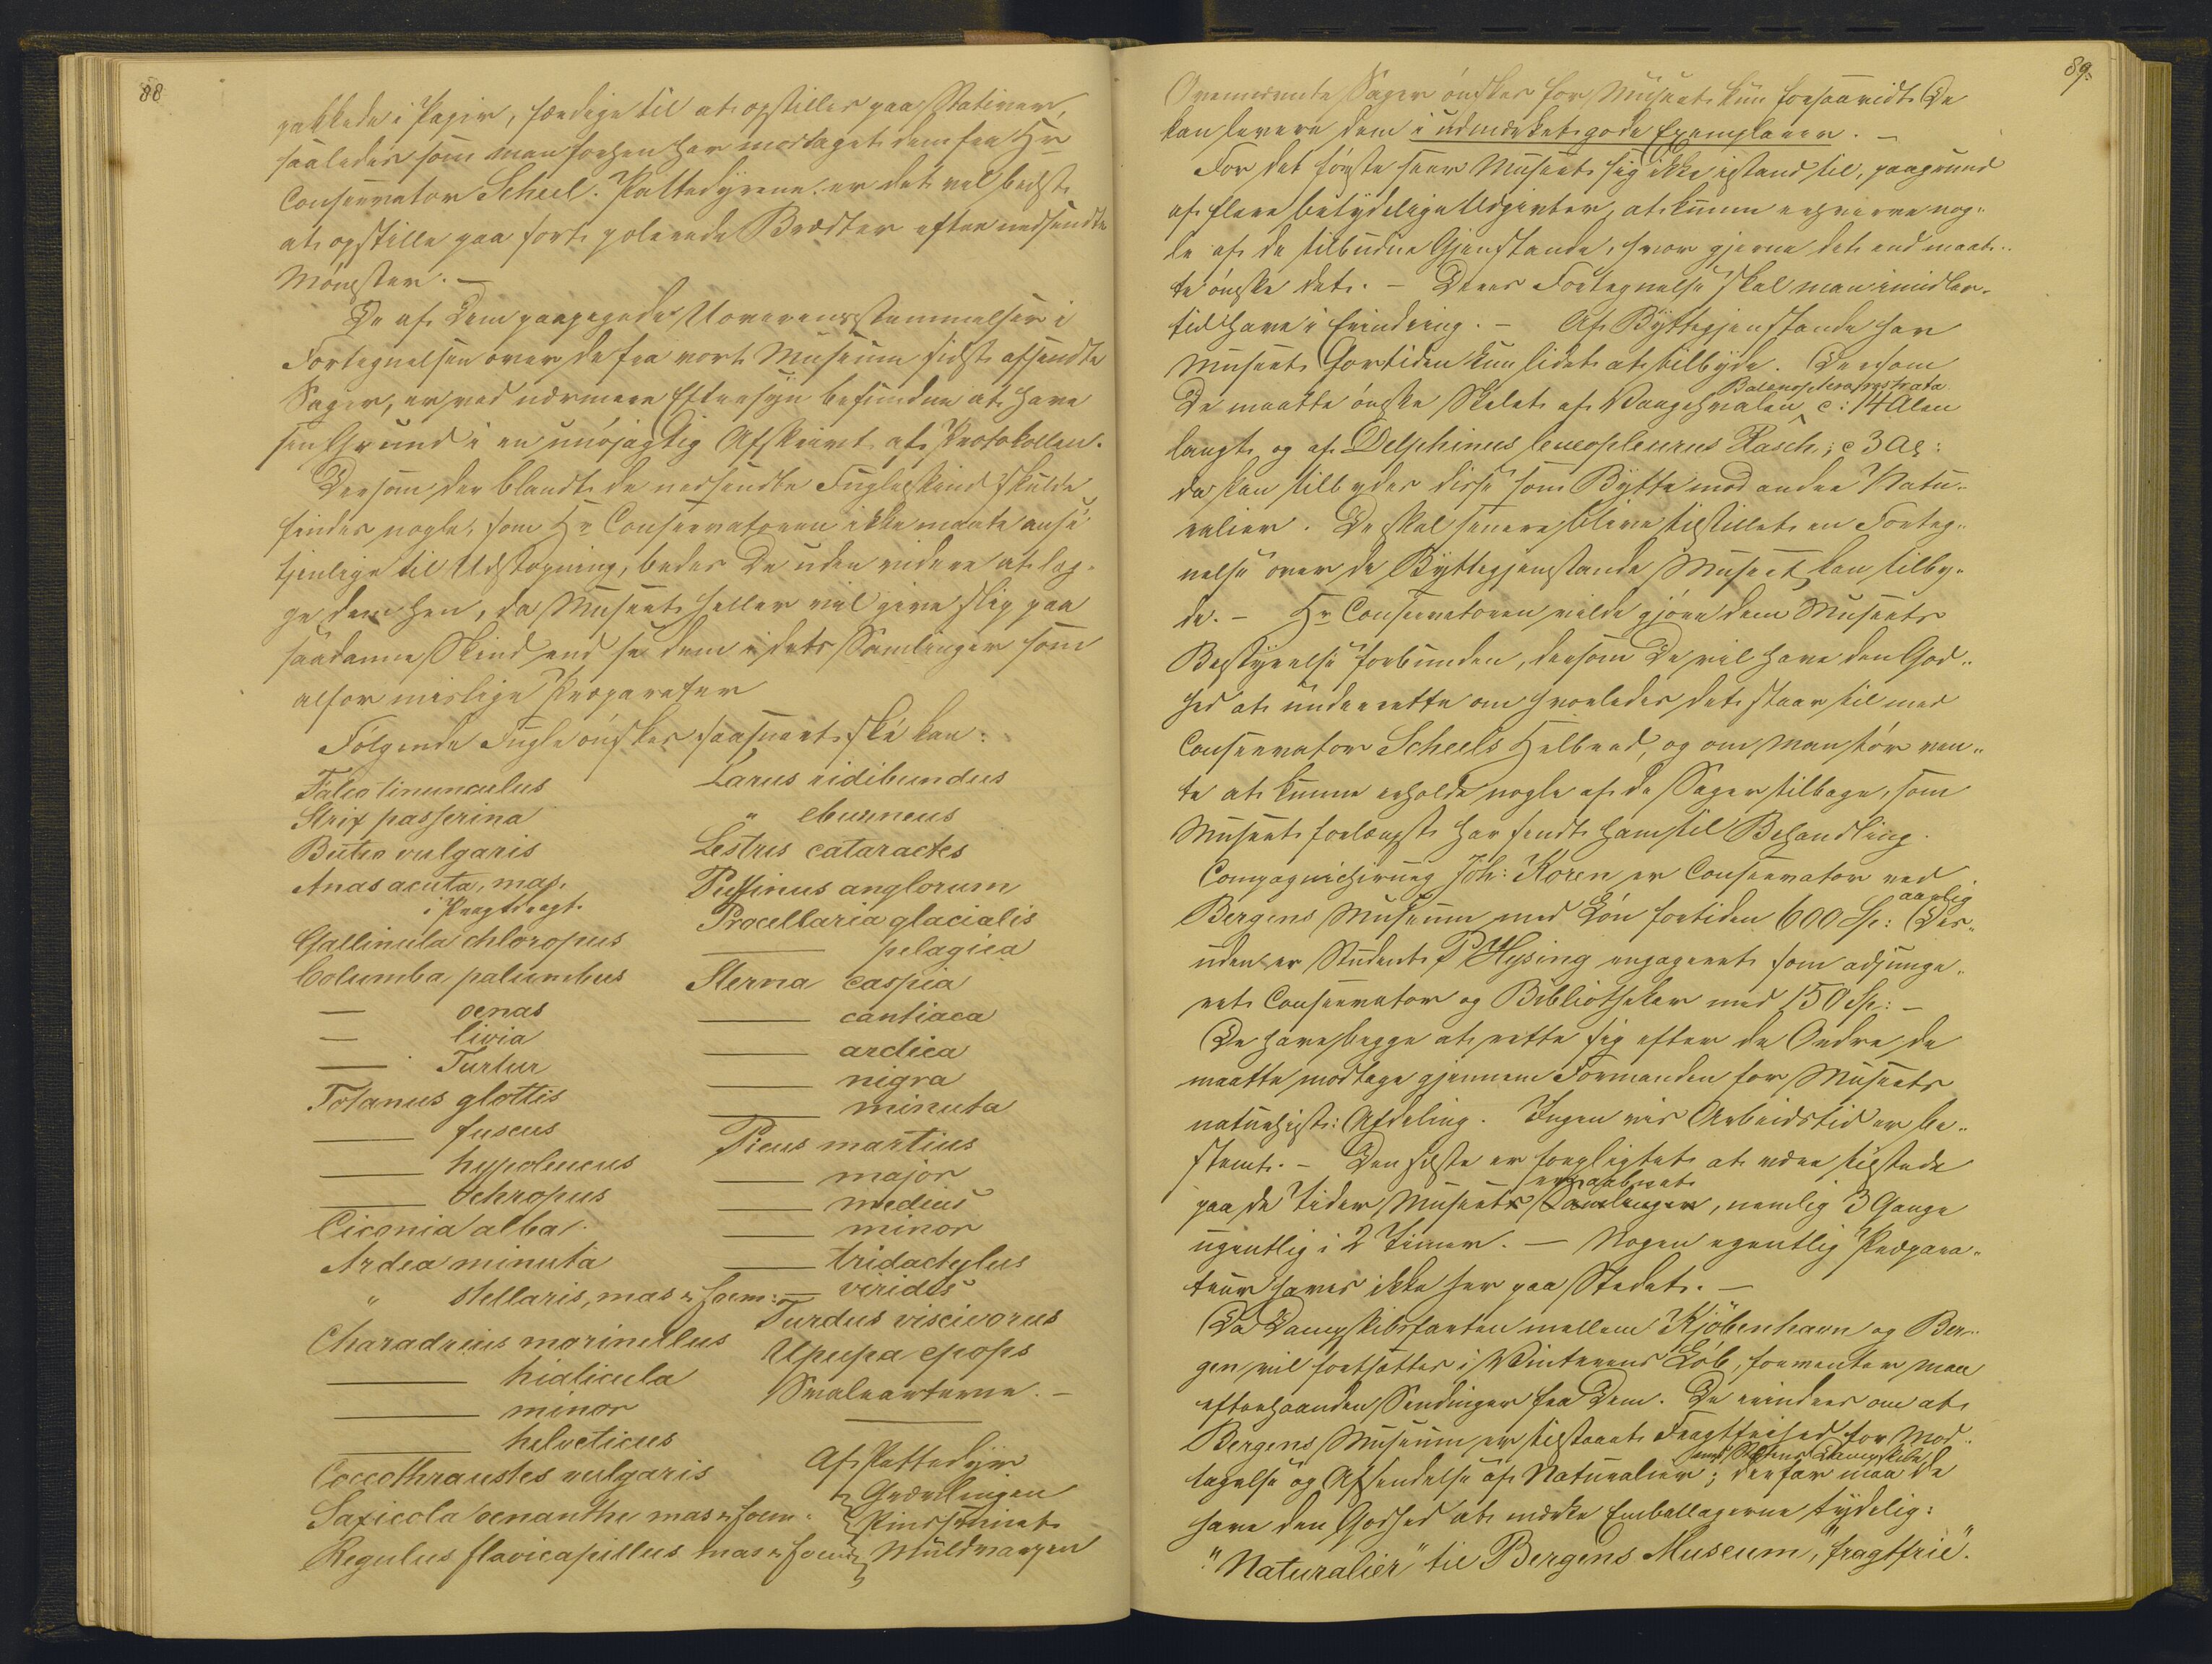 88
pakkede i Papir, færdige til at opstilles paa Stativer,
saaledes som man forhen har modtaget dem fra Hr
Conservator Scheel. Pattedyrene er det vel bedst
at opstille paa sort polerede Brædter efter nedsendte
Mönster. —
De af Dem paapegede Uoverensstemmelser i
Fortegnelsen over de fra vort Museum sidst afsendte
Sager, er ved nærmere Eftersyn befundne at have
sin Grund i en unöjagtig Afskrivt af Protokollen.
Dersom der blandt de nedsendte Fugleskind skulde
findes nogle, som Hr Conservatoren ikke maate ansé
tjenlige til Udstopning, bedes De uden videre at læg-
ge dem hen, da Museet heller vil give slip paa
saadanne Skind end se dem i dets Samlinger som
altfor mislige Præparater
Fölgende Fugle önskes saasnart ské kan:
Falco tinunculus
Strix passerina
Buteo vulgaris
Anas acuta, mas,
i Pragtdragt.
Gallinula chloropus
Columba palumbus
— oenas
— livia
— Turtur
Totanus glottis
— fuscus
— hypoleucus
— Ochropus
Ciconia alba
Ardea minuta
" stellaris, mas & foem:
Charadrius morinellus
— hiaticula
— minor
— helveticus
Coccothraustes vulgaris
Saxicola oenanthe mas & foem:
Regulus flavicapillus mas & foem:
Larus ridibundus
" eburneus
Lestris cataractes
Puffinus anglorum
Procellaria glacialis
— pelagica
Sterna caspia
— cantiaca
— arctica
— nigra
— minuta
Picus martius
— major
— medius
— minor
— tridactylus
— viridis
Turdus viscivorus
Upupa epops
Svalearterne. —
Af Pattedyr
Grævlingen
Pindsvinet
Muldvarpen
89.
Ovennævnte Sager önskes for Museet kun forsaavidt De
kan levere dem i udmærket gode Exemplarer. —
For det förste seer Museet sig ikke istand til, paagrund
af flere betydelige Udgivter, at kunne erhverve nog-
le af de tilbudne Gjenstande, hvor gjerne det end maat-
te önske det. — Deres Fortegnelse skal man imidler-
tid have i Erindring. — Af Byttegjenstande har
Museet fortiden kun lidet at tilbyde. Dersom
Balænoptera rostrata
De maatte önske Skelet af Vaagehvalen c: 14 Alen
langt og af Delphinus leucopleurus Rasch; c 3 Al:
da kan tilbydes disse som Bytte mod andre Natu-
ralier. De skal senere blive tilstillet en Forteg-
nelse over de Byttegjenstande Museet kan tilby-
de. — Hr Conservatoren vilde gjöre dem Museets
Bestyrelse forbunden, dersom De vil have den God-
hed at underrette om hvorledes det staar til med
Conservator Scheels Helbred, og om man tör ven-
te at kunne erholde nogle af de Sager tilbage, som
Museet forlængst har sendt ham til Behandling.
Compagnichirurg Joh: Koren er Conservator ved
Bergens Museum med Lön fortiden 600 Sp: aarlig Des-
uden er Student P Hysing engageret som adjunge-
ret Conservator og Bibliothekar med 150 Sp: —
De have begge at rette sig efter de Ordre, de
maatte modtage gjennem Formanden for Museets
naturhist: Afdeling. Ingen vis Arbeidstid er be-
stemt. — Den sidste er forpligtet at være tilstede
er aabnet
paa de Tider Museets Samlinger, nemlig 3 Gange
ugentlig i 2 Timer. — Nogen egentlig Præpara-
teur haves ikke her paa Stedet. —
Da Dampskibsfarten mellem Kjöbenhavn og Ber-
gen vil fortsættes i Vinterens Löb, forventer man
efterhaanden Sendinger fra Dem. De erindres om at
Bergens Museum er tilstaaet Fragtfrihed for Mod-
med Statens Dampskibe
tagelse og Afsendelse af Naturalier; derfor maa De
have den Godhed at mærke Emballagerne tydelig:
"Naturalier" til Bergens Museum, "fragtfrie".